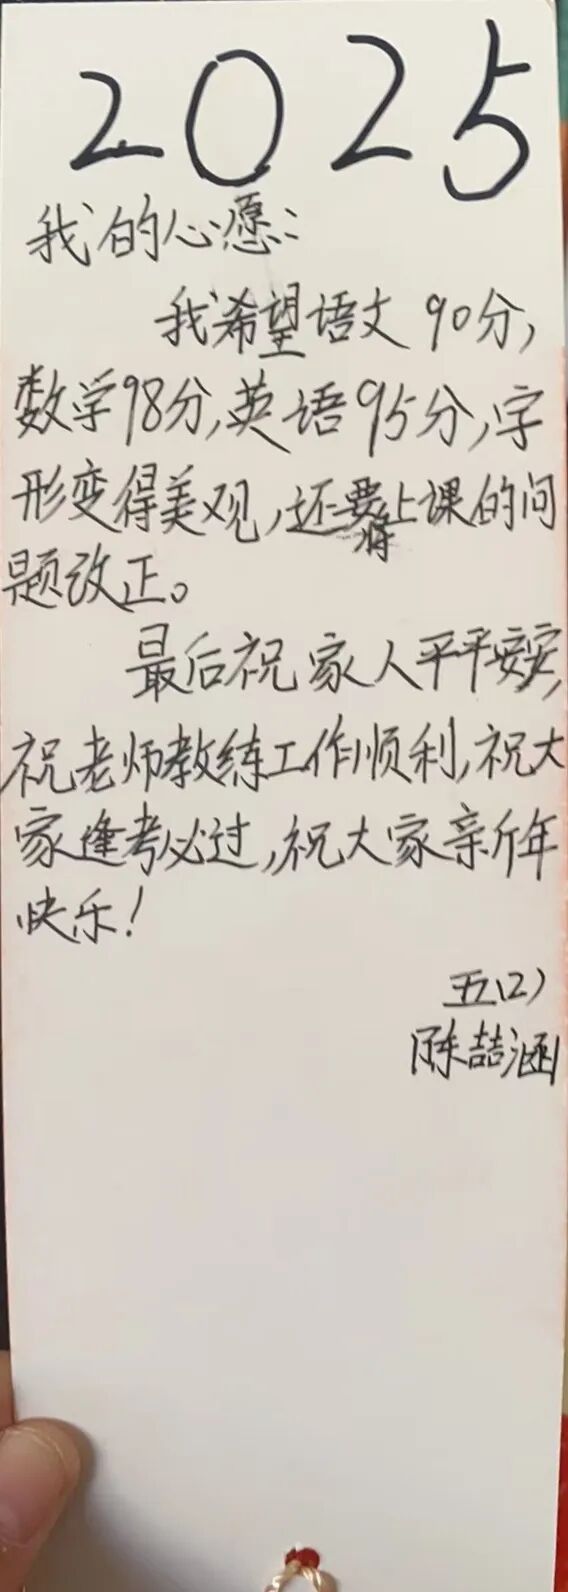 2025
我的心愿：
我希望语文90分，
数学98分，英语95分，字
形变得美观，还要将上课的问
题改正。
最后祝家人平平安安，
祝老师教练工作顺利，祝大
家逢考必过，祝大家亲斤年
快乐！
五(2)
陈喆涵